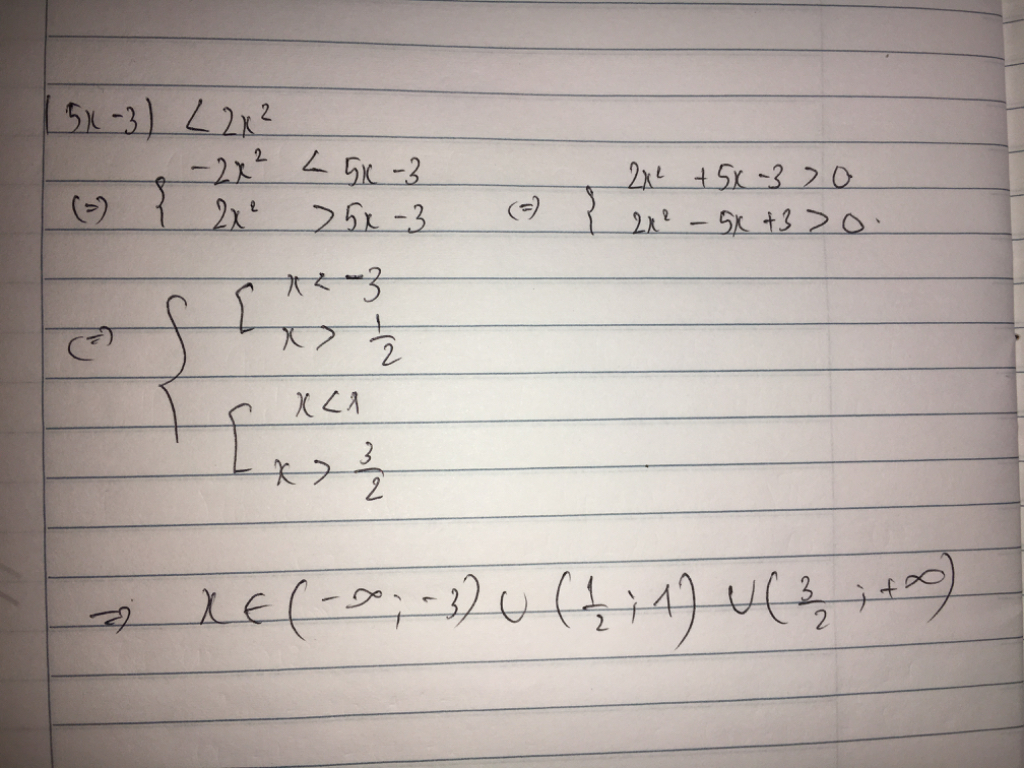 |5x-3) < 2x²
(=) { -2x² < 5x-3
2x² > 5x-3 (=) { 2x² +5x-3 > 0
2x² - 5x +3 > 0.
(=) { [ x < -3
x > 1/2
[ x < 1
x > 3/2
=> x ∈ (-∞; -3) ∪ (1/2; 1) ∪ (3/2; +∞)